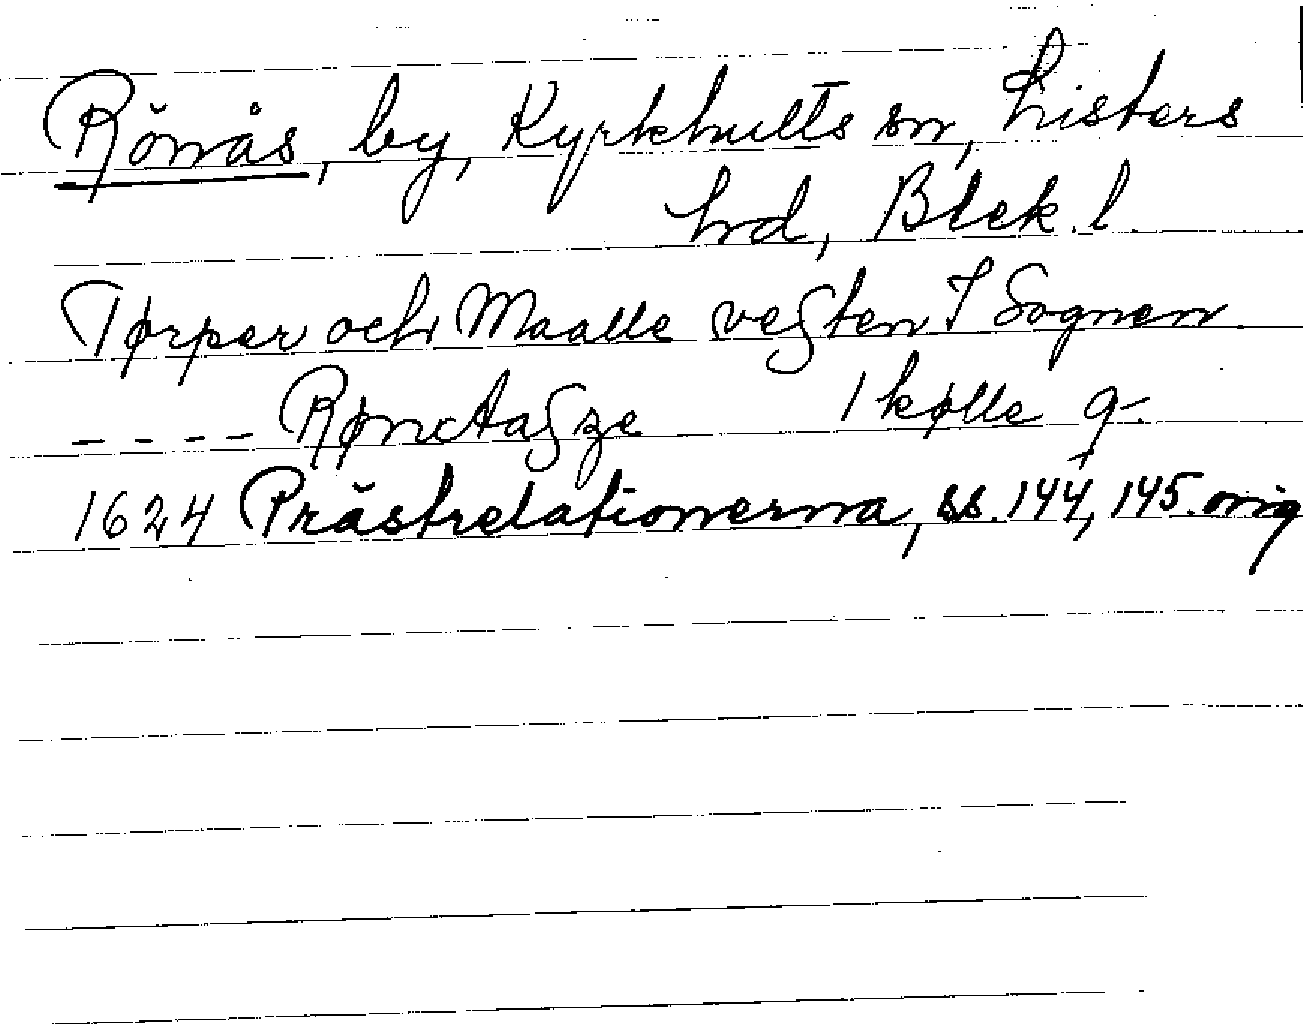 Rönås, by, Kyrkhults sn, Listers
hd, Blek. l.
Tørper och Maalle vesten I Sognen
---- RønctaSze 1 kølle g-
1624 Prästrelationerna, ss. 144, 145. orig